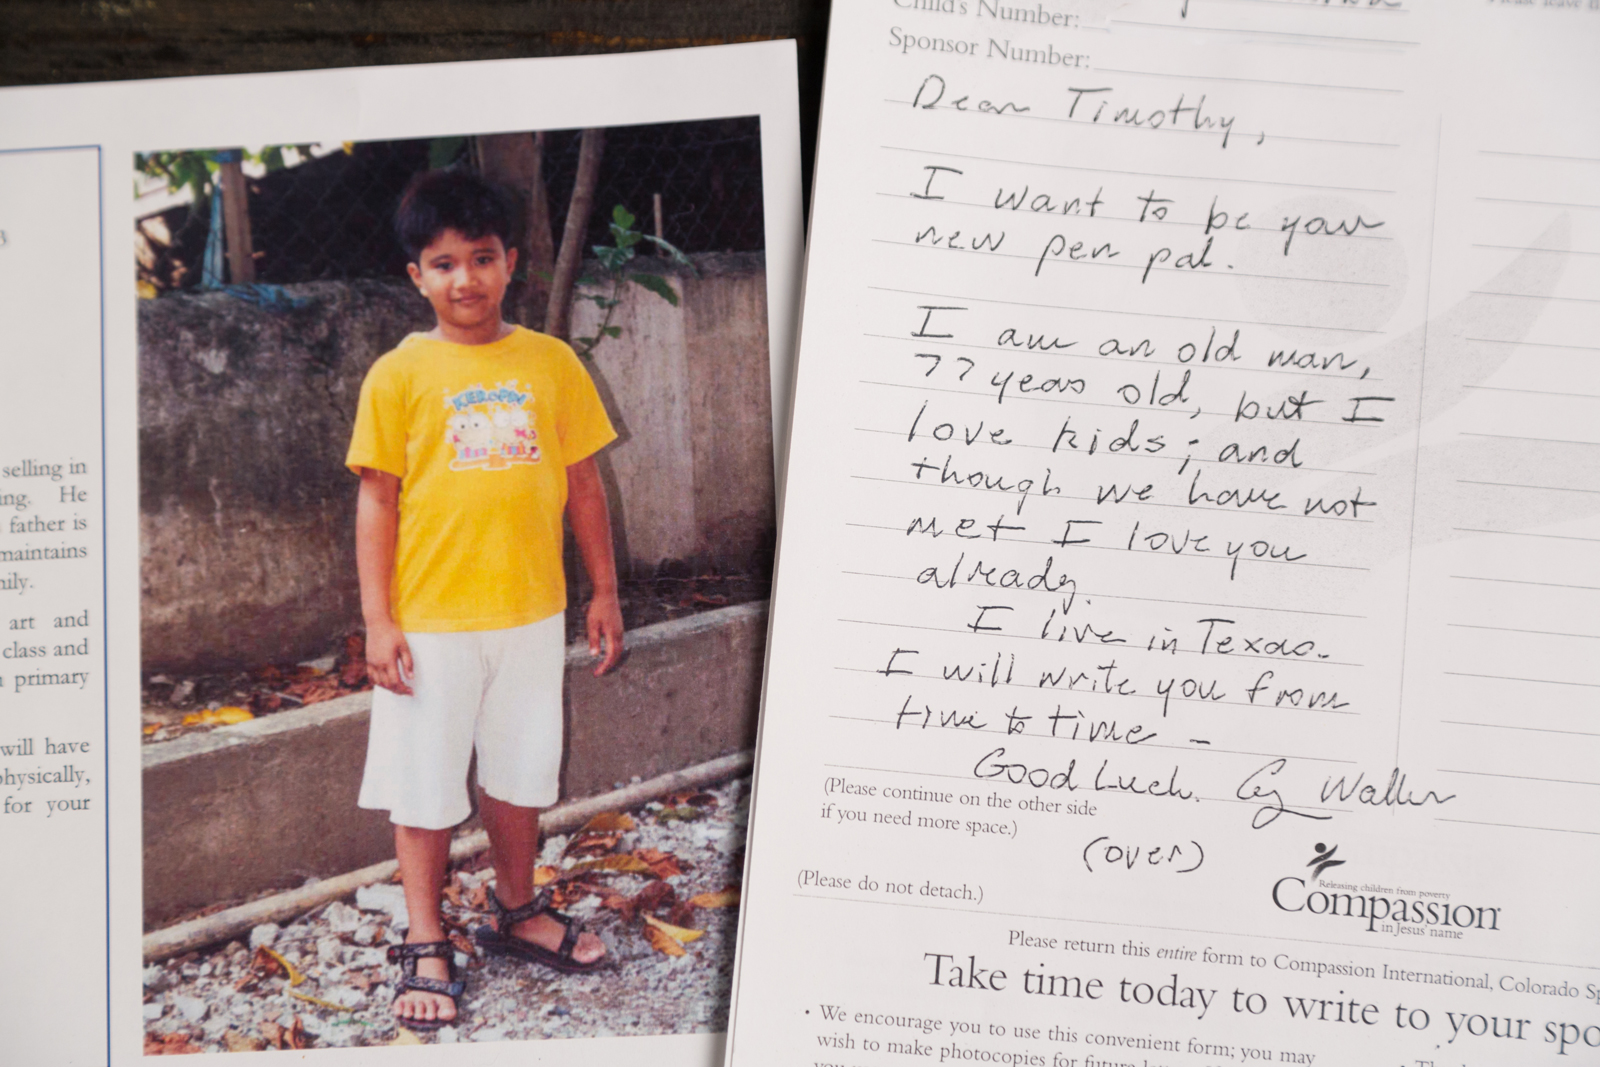 3
selling in
ing. He
father is
maintains
mily.
art and
class and
primary
will have
physically,
for your
KEROPPI
Child's Number:
Sponsor Number:
Dear Timothy,
I want to be your
new pen pal.
I am an old man,
77 years old, but I
love kids; and
though we have not
met I love you
already.
I live in Texas.
I will write you from
time to time -
Good Luck. Walker
(Please continue on the other side
if you need more space.)
(over)
(Please do not detach.)
Releasing children from poverty
Compassion
in Jesus' name
Please return this entire form to Compassion International, Colorado Sp
Take time today to write to your spo
• We encourage you to use this convenient form; you may
wish to make photocopies for future